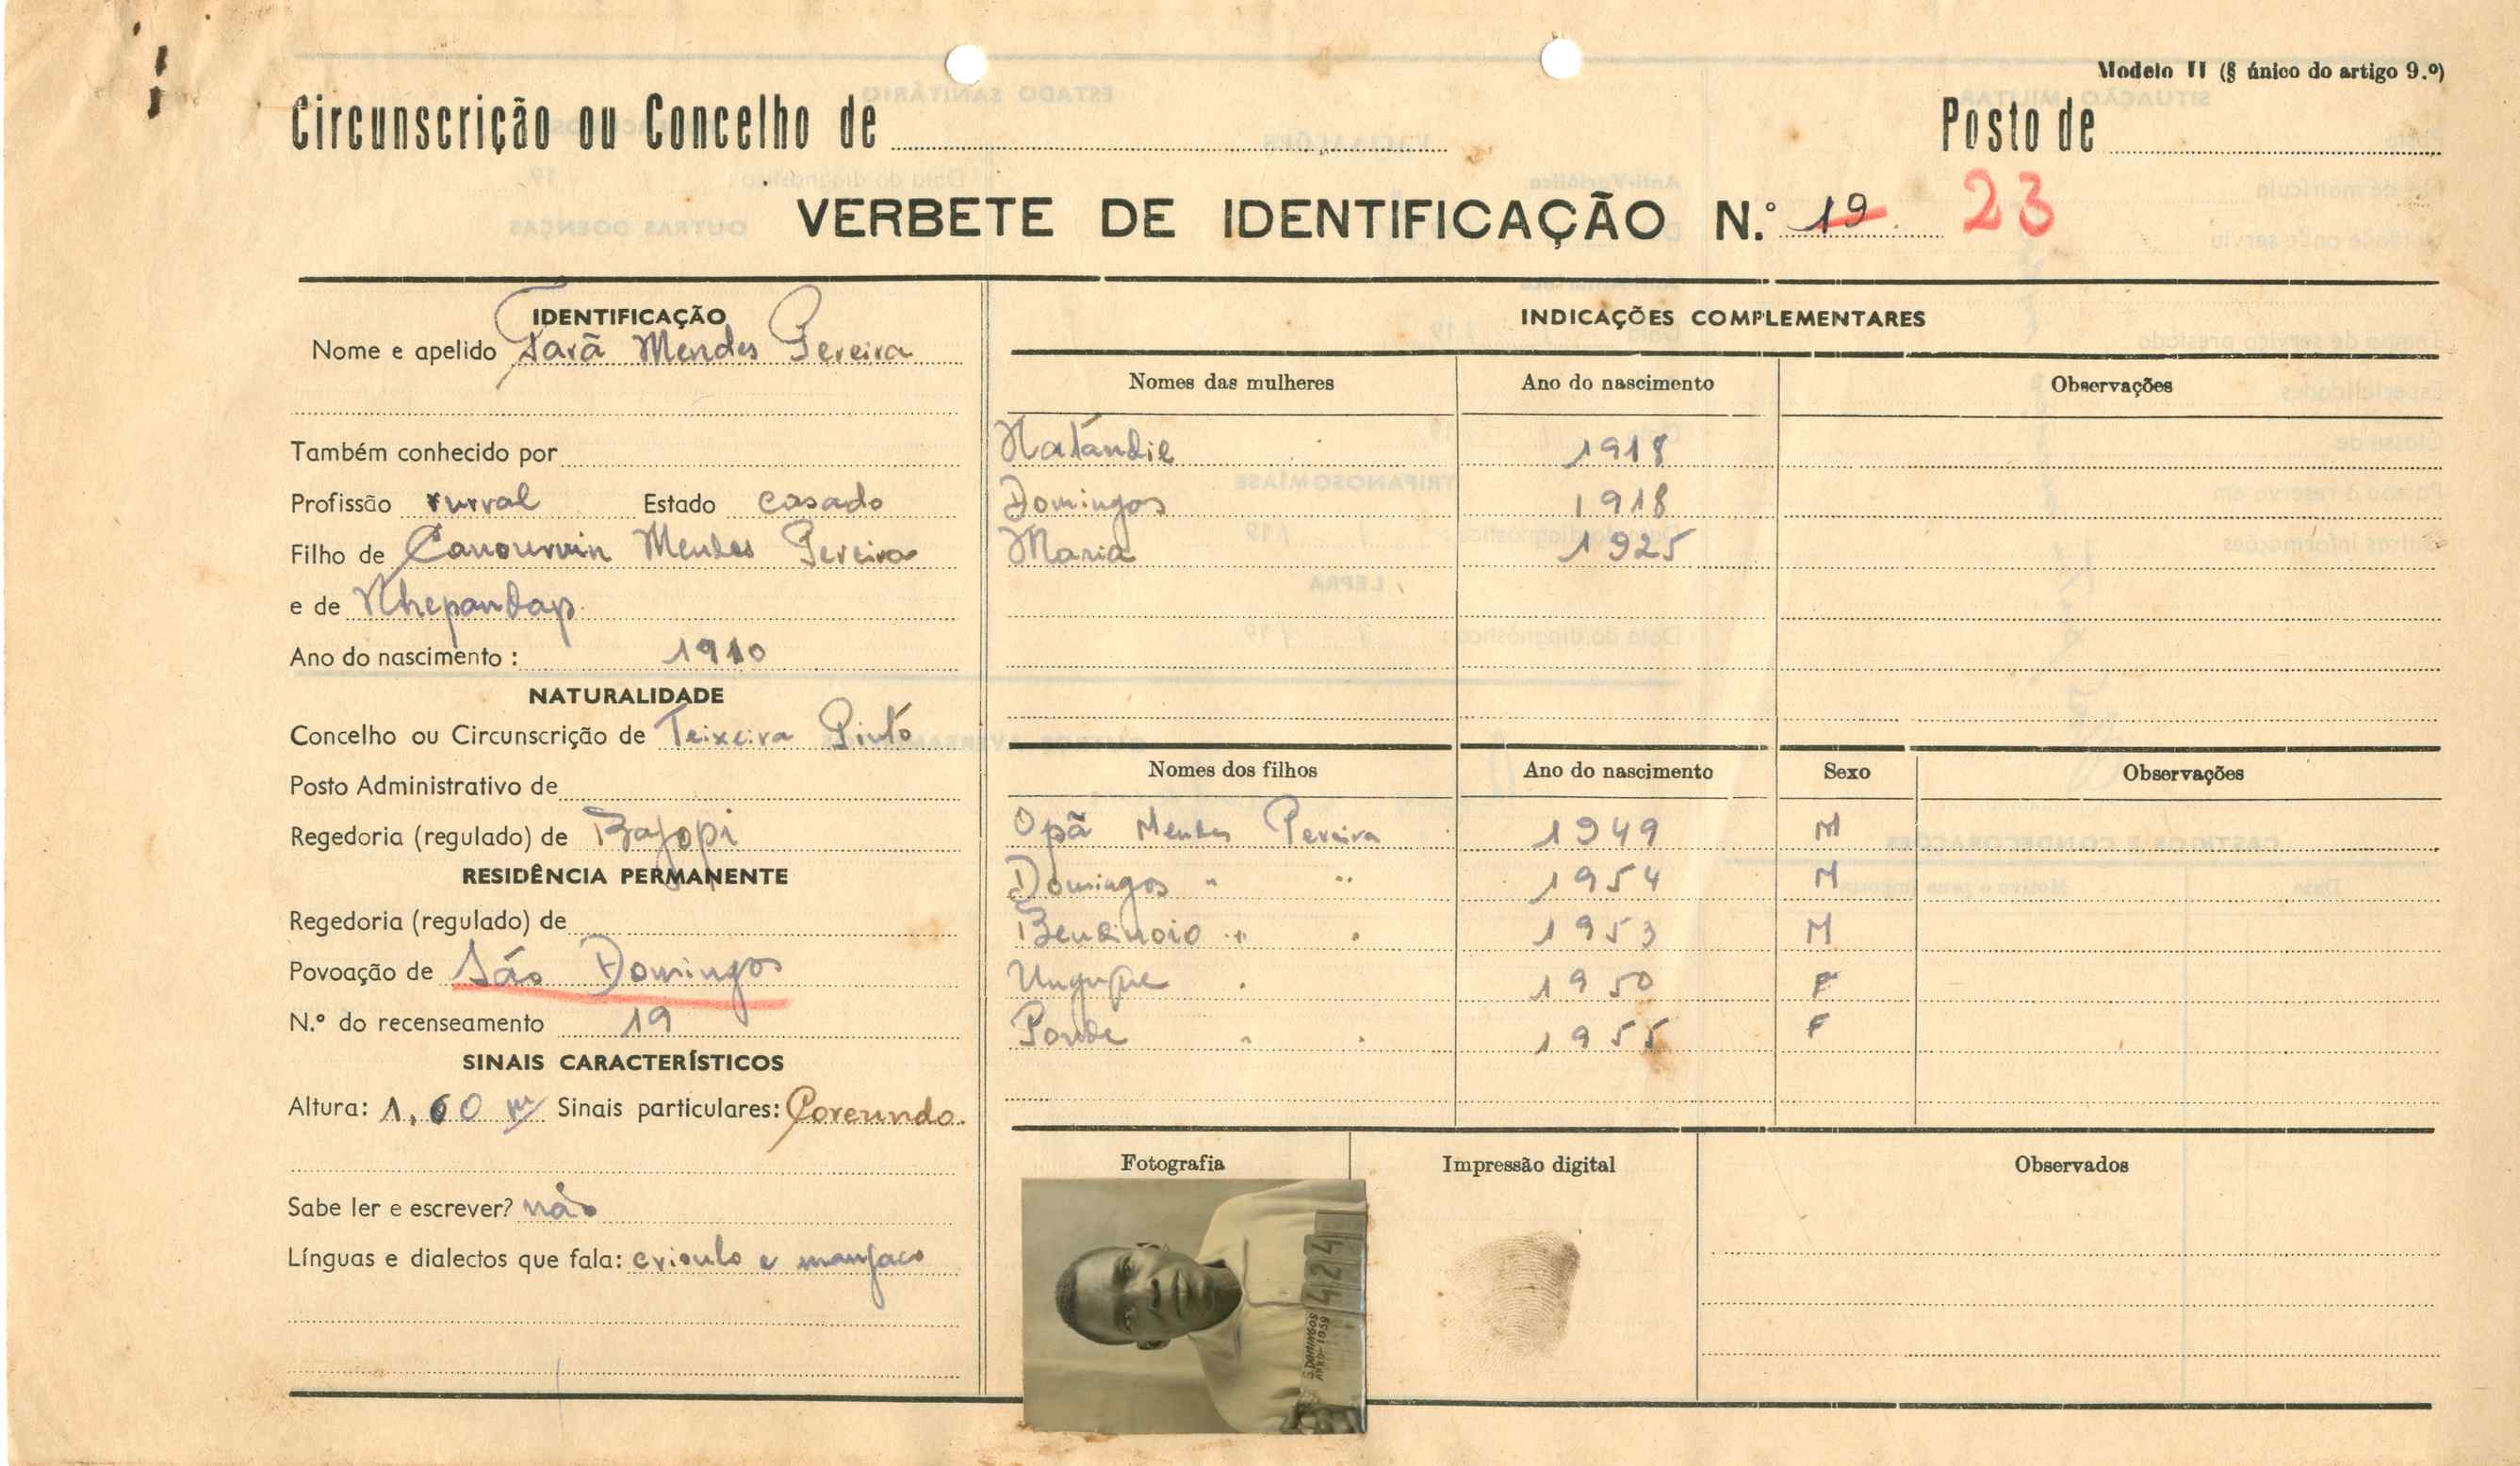 Modelo II (§ único do artigo 9.º)
Circunscrição ou Concelho de
Posto de
VERBETE DE IDENTIFICAÇÃO N.º 19 23
IDENTIFICAÇÃO
Nome e apelido Tarã Mendes Pereira
Também conhecido por
Profissão rurral Estado casado
Filho de Mendes Pereira
e de Nhepandap
Ano do nascimento : 1910
NATURALIDADE
Concelho ou Circunscrição de Teixeira Pinto
Posto Administrativo de
Regedoria (regulado) de Bajopi
RESIDÊNCIA PERMANENTE
Regedoria (regulado) de
Povoação de São Domingos
N.º do recenseamento 19
SINAIS CARACTERÍSTICOS
Altura: 1,60 m Sinais particulares: Corcundo.
Sabe ler e escrever? não
Línguas e dialectos que fala: crioulo e manjaco
INDICAÇÕES COMPLEMENTARES
Nomes das mulheres Ano do nascimento Observações
1918
Domingas 1918
Maria 1925
Nomes dos filhos Ano do nascimento Sexo Observações
Opã Mendes Pereira 1949 M
Domingos " " 1954 M
" " 1953 M
1950 F
Ponde " " 1955 F
Fotografia Impressão digital Observados
4424
S. DOMINGOS
1959
ESTADO SANITÁRIO
SITUAÇÃO MILITAR
OUTRAS DOENÇAS
TRIPANOSOMÍASE
LEPRA
CASTIGOS E CONDECORAÇÕES